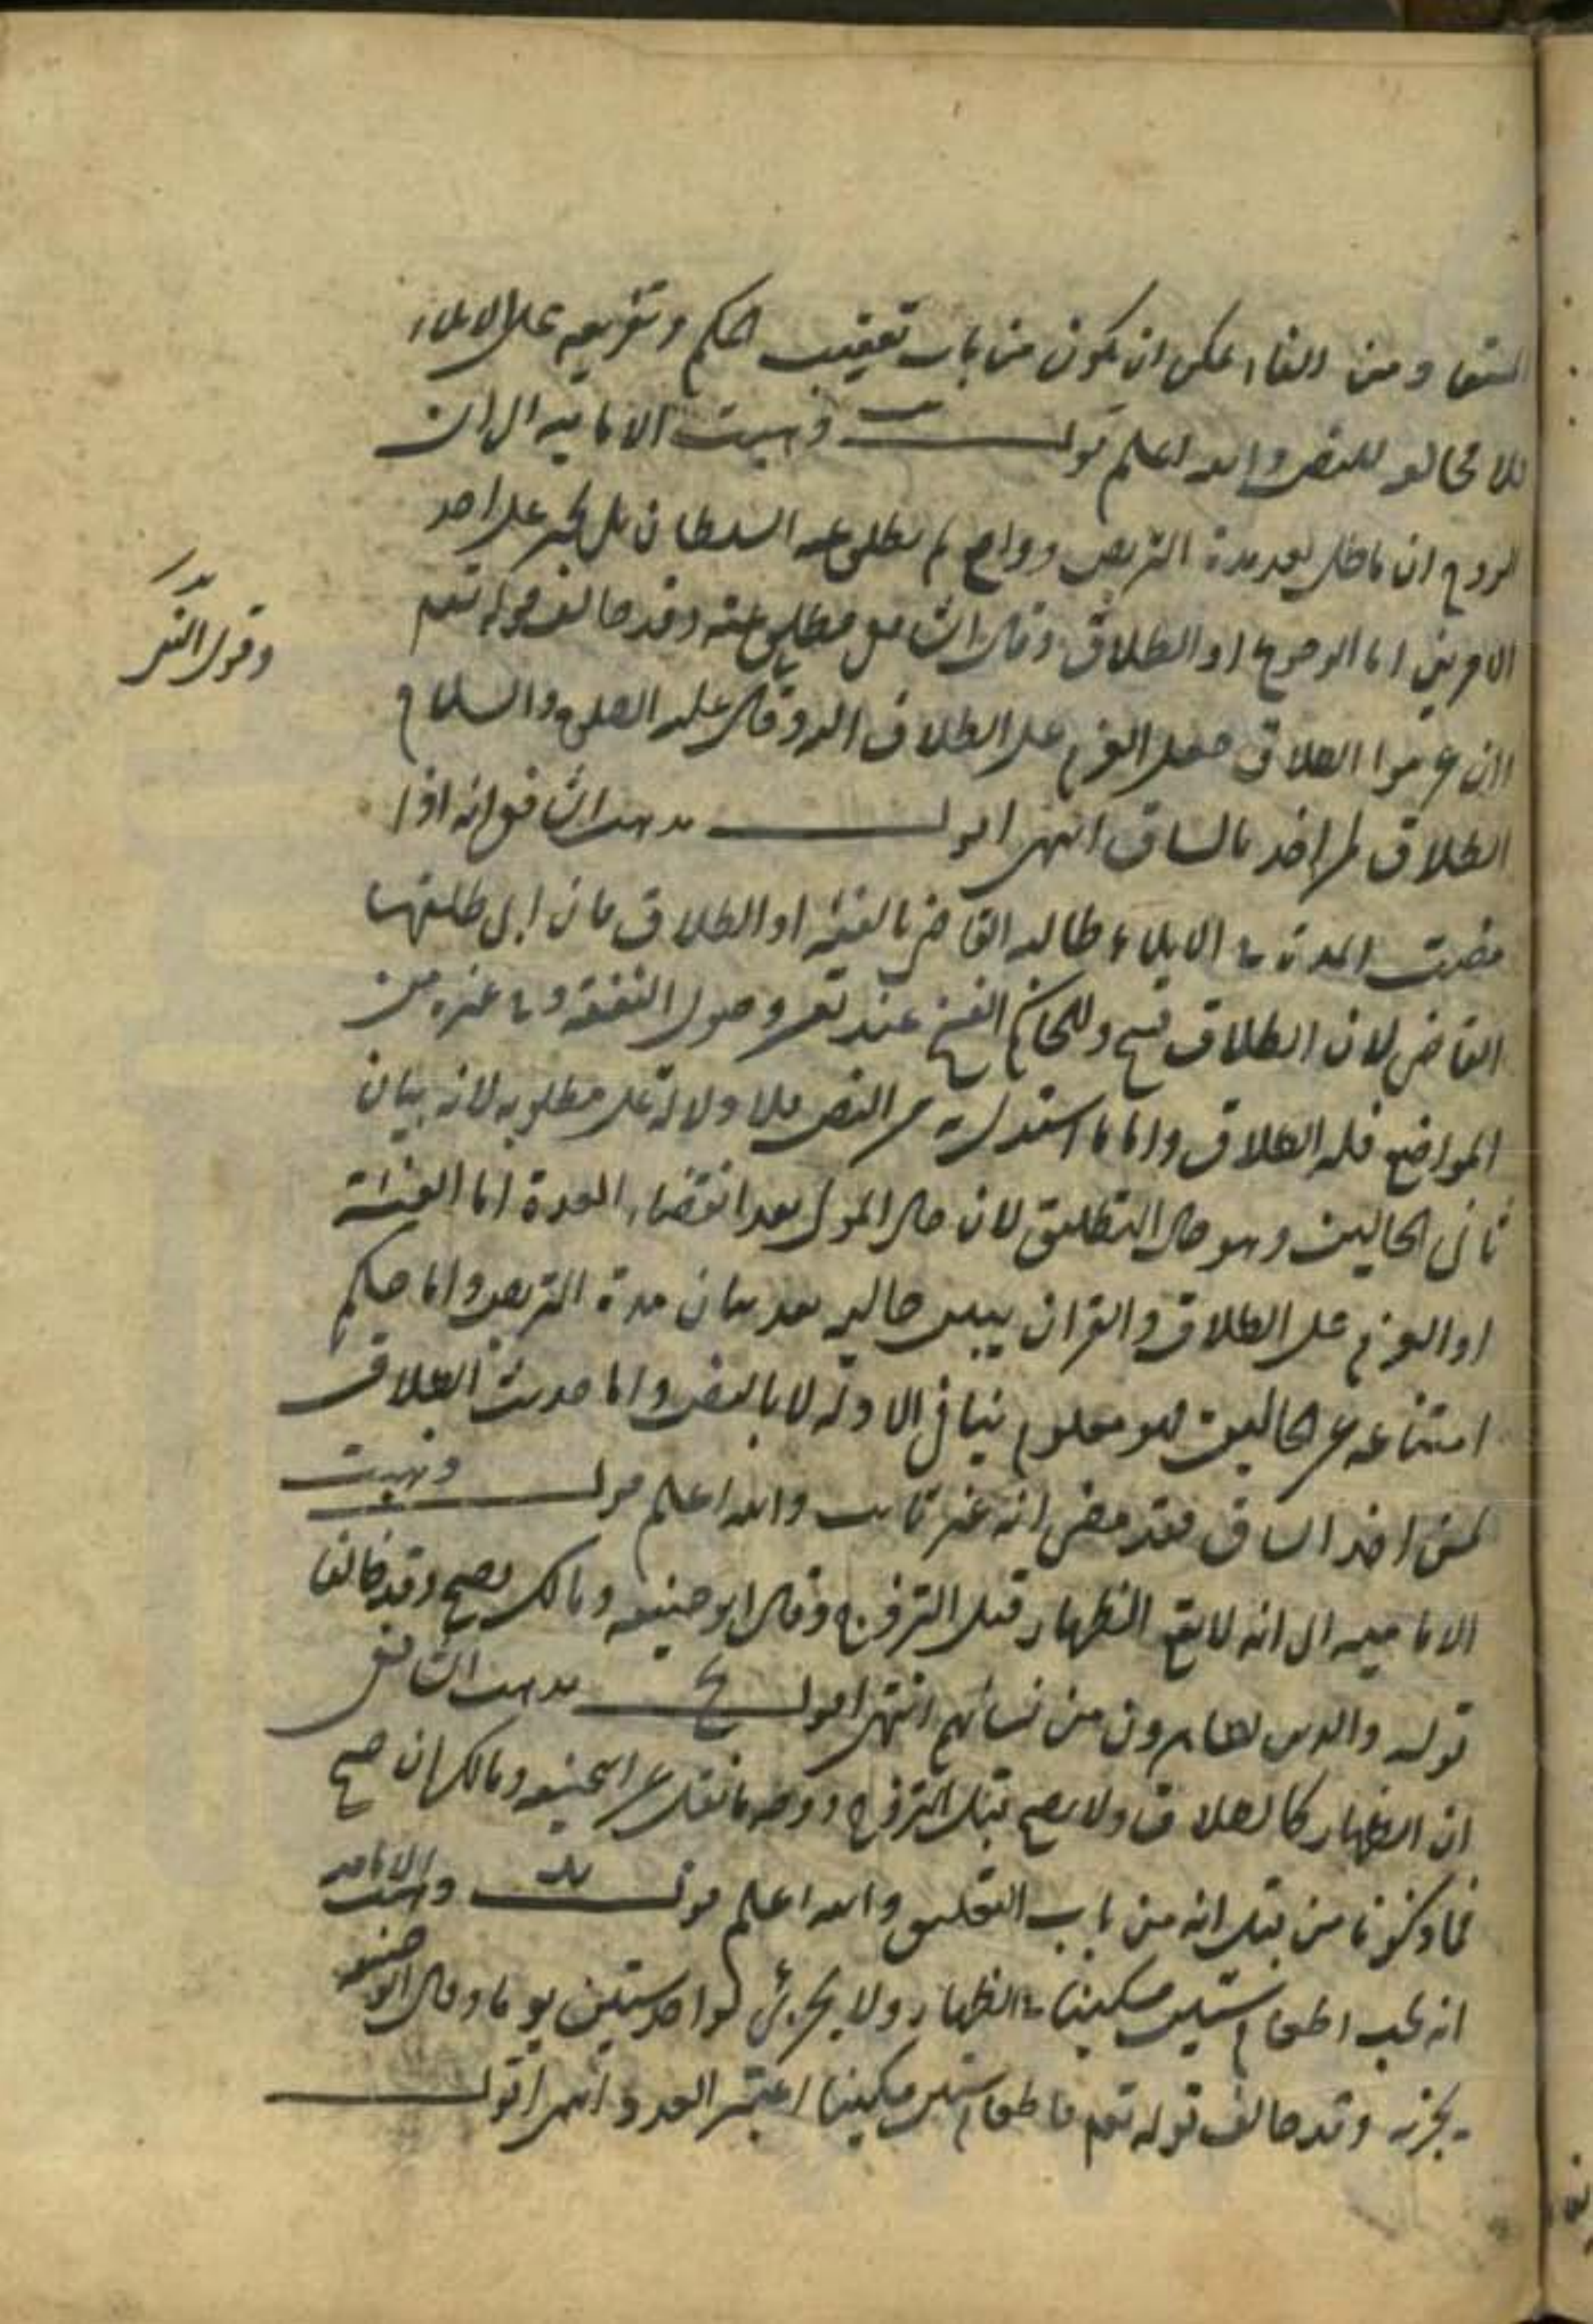 ومن الفاء يمكن ان يكون من باب تعقيب الحكم وتفريعه على الايلاء
فلا مخالفة للنص والله اعلم قوله ذهبت الامامية الى ان
الزوج ان ماطل بعد مدة التربص ودافع لم يطلق عنه السلطان بل يجبر على احد
الامرين اما الرجوع او الطلاق وقال الشافعي يطلق عنه وقد خالف قوله تعم
وان عزموا الطلاق فجعل العزم على الطلاق اليه وقال عليه الصلوة والسلام
الطلاق لمن اخذ بالساق انتهى اقول مذهب الشافعي انه اذا
مضت المدة في الايلاء طالبه القاضي بالفيئة او الطلاق فان ابى طلقها
القاضي لان الطلاق فسخ وللحاكم الفسخ عند تعسر وصول النفقة وفي غيره من
المواضع فله الطلاق واما ما استدل به من النص فلا دلالة على مطلوبه لانه بيان
ثاني الحالين وهو حال التطليق لان حال المولى بعد انقضاء المدة اما الفيئة
او العزم على الطلاق والقران يبين حاليه بعد بيان مدة التربص واما حكم
امتناعه عن الحالين فهو معلوم بباقي الادلة لا بالنص واما حديث الطلاق
لمن اخذ الساق فقد مضى انه غير ثابت والله اعلم قوله وذهبت
الامامية الى انه لا يقع الظهار قبل التزوج وقال ابو حنيفه ومالك يصح وقد خالفا
قوله والذين يظاهرون من نسائهم انتهى اقول مذهب الشافعي
ان الظهار كالطلاق ولا يصح قبل التزوج ووجه ما نقل عن ابي حنيفه ومالك ان صح
فما ذكرنا من قبل انه من باب التعليق والله اعلم قوله وذهبت الامامية
انه يجب اطعام ستين مسكينا في الظهار ولا يجزئ لواحد ستين يوما وقال ابو حنيفه
يجزيه وقد خالف قوله تعم فاطعام ستين مسكينا اعتبر العدد انتهى اقول